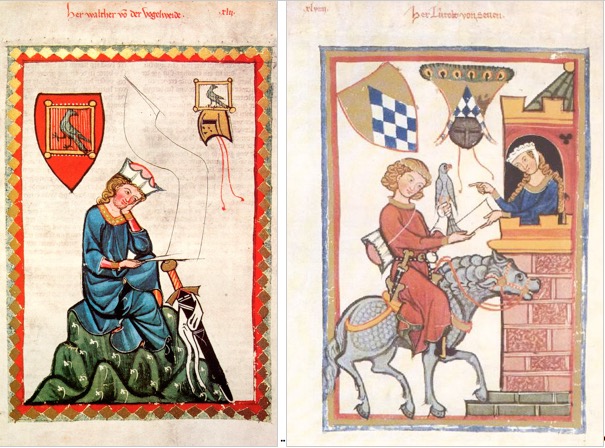 Her walther võ der Vogelweide.
.xlv.
.xlviii.
Her Lutolt von seuen.